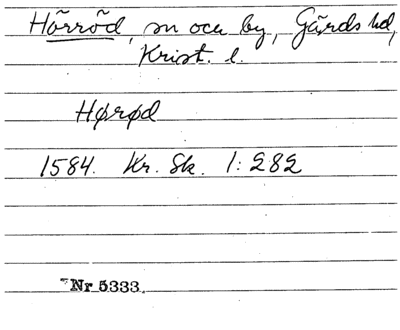 Hörröd, sn och by, Gärds hd,
Krist. l.
Hørød
1584. Kr. Sk. 1:282
Nr 5333.